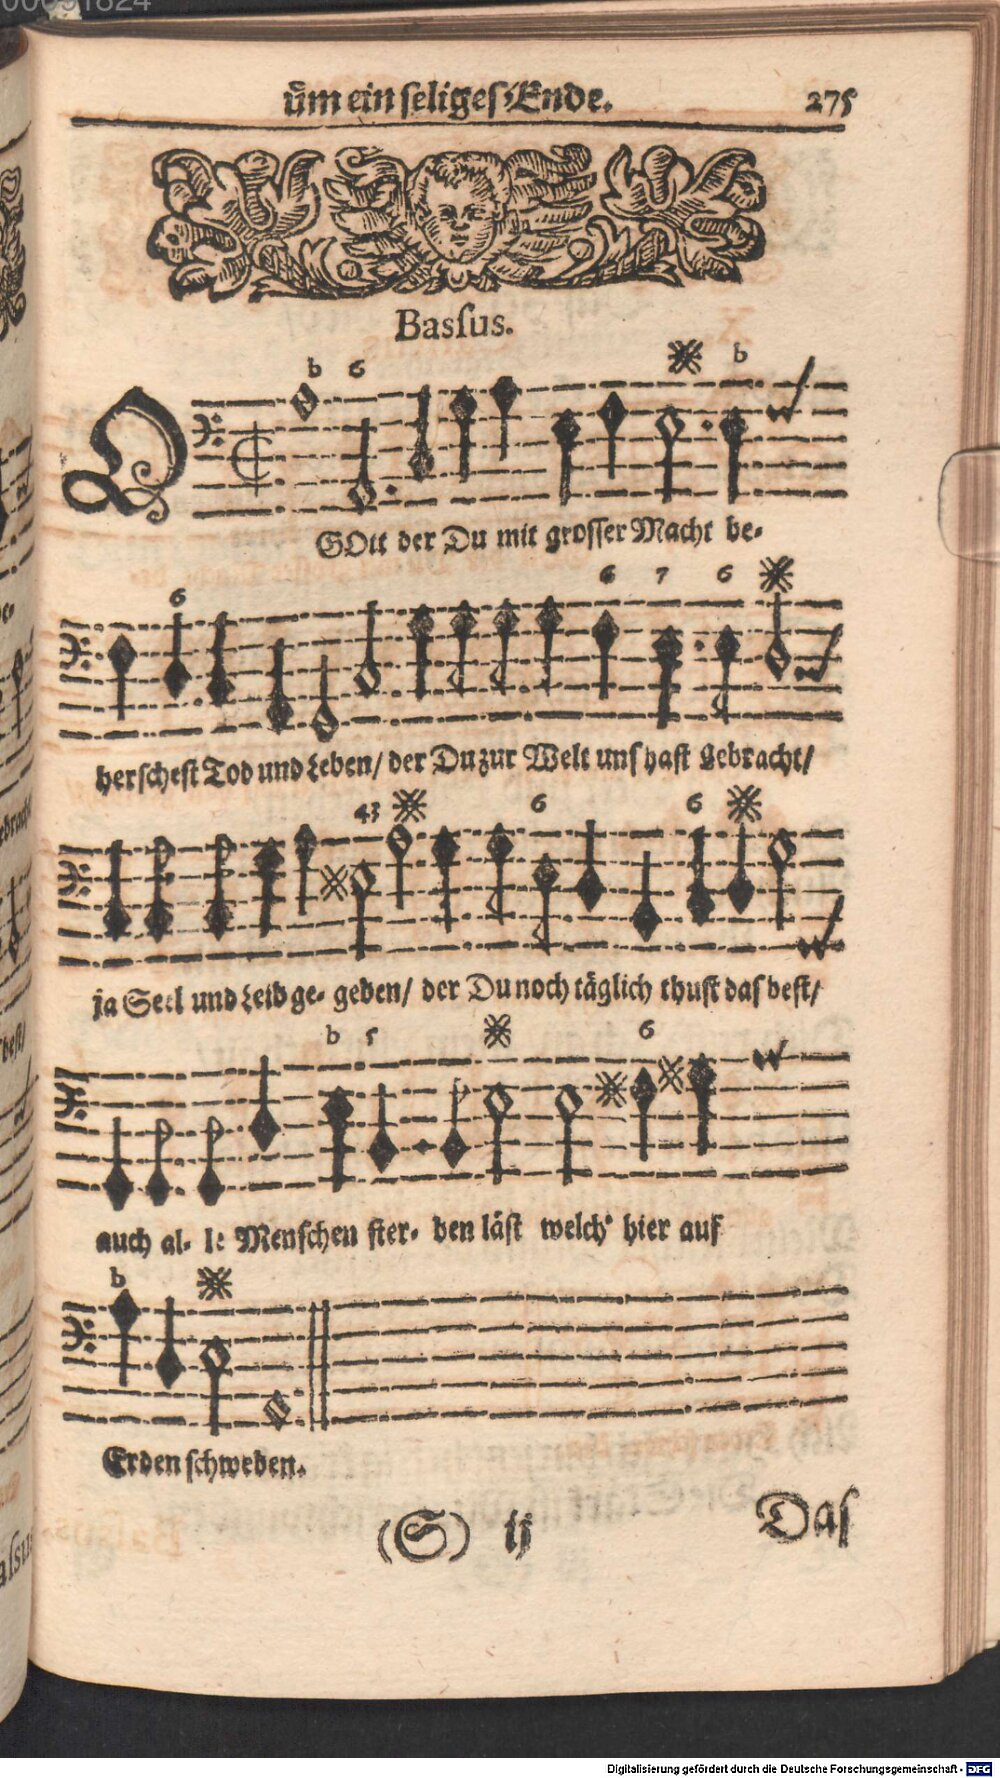 00051824
üm ein seliges Ende. 275
Bassus.
b 6 b
O
GOtt der Du mit grosser Macht be-
6 6 7 6
herschest Tod und Leben/ der Du zur Welt uns hast Gebracht/
43 6 6
ja Seel und Leib ge- geben/ der Du noch täglich thust das best/
b 5 6
auch al- le Menschen ster- ben läst welch' hier auf
b
Erden schweben.
(S) ij Das
Digitalisierung gefördert durch die Deutsche Forschungsgemeinschaft - DFG